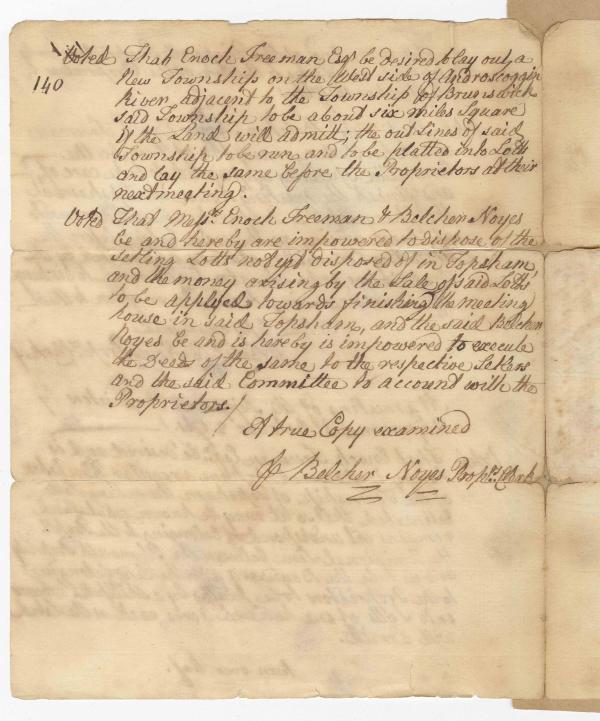 Voted That Enoch Freeman Esqr be desired to lay out a
140
New Township on the West side of Androscoggin
River adjacent to the Township of Brunswick
said Township to be about six miles Square
if the Land will admit; the out Lines of said
Township to be run and to be platted into Lotts
and lay the same before the Proprietors at their
next meeting.
Voted That Messrs. Enoch Freeman & Belcher Noyes
be and hereby are impowered to dispose of the
Settling Lotts not yet disposed of in Topsham,
and the money arising by the Sale of said Lotts
to be applyed towards finishing the meeting
house in said Topsham, and the said Belcher
Noyes be and is hereby is impowered to execute
the Deeds of the same to the respective Setlers
and the said Committee to account with the
Proprietors./
A true Copy examined
Belcher Noyes Proprs. Clerk